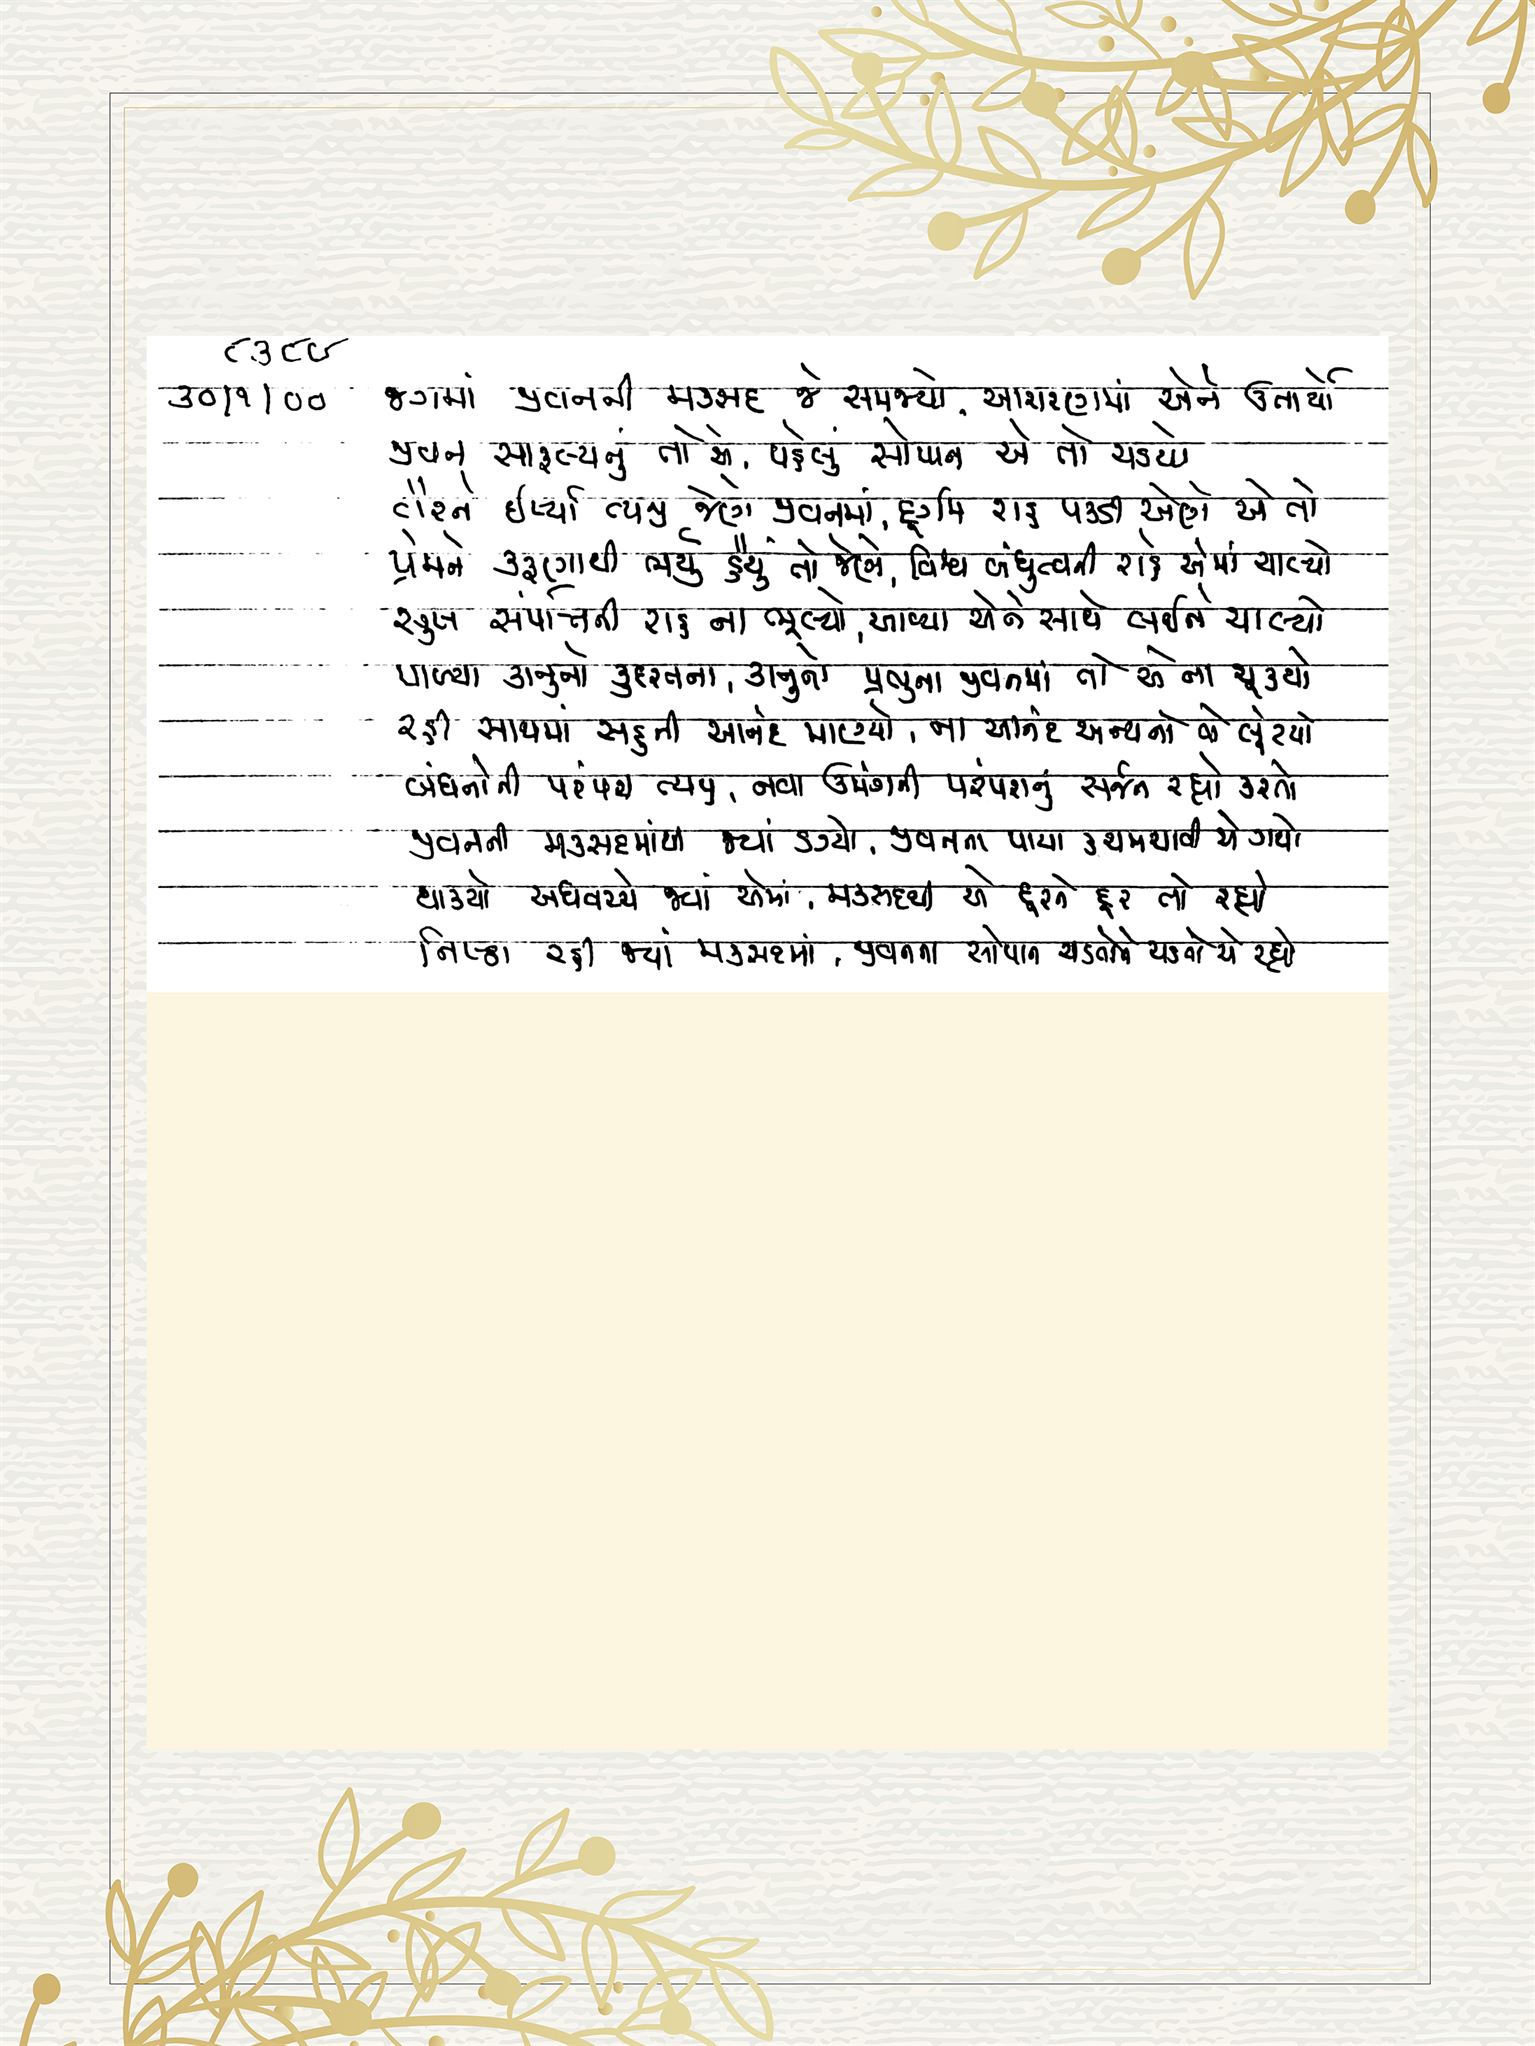 ૮૩૮૮
૩૦/૧/૦૦ જગમાં જીવનની મકસદ જે સમજ્યો, આચરણમાં એને ઉતાર્યો
જીવન સાફલ્યનું તો એ, પહેલું સોપાન એ તો ચડયો
વૈરને ઈર્ષ્યા ત્યજી જેણે જીવનમાં, દુર્ગમ રાહ પકડી એણે એ તો
પ્રેમને કરૂણાથી ભર્યું હૈયું તો જેણે, વિશ્વ બંધુત્વની રાહે એમાં ચાલ્યો
સુખ સંપત્તિની રાહ ના ભૂલ્યો, આવ્યા એને સાથે લઈને ચાલ્યો
પાળ્યા કાનુનો કુદરતના, કાનુનો પ્રભુના જીવનમાં તો એ ના ચૂક્યો
રહી સાથમાં સહુની આનંદ માણ્યો, ના આનંદ અન્યનો એ લૂંટયો
બંધનોની પરંપરા ત્યજી, નવા ઉમંગની પરંપરાનું સર્જન રહ્યો કરતો
જીવનની મકસદમાંથી જ્યાં ડગ્યો, જીવનના પાયા કચમચાવી એ ગયો
થાક્યો અધવચ્ચે જ્યાં એમાં, મકસદથી એ દૂરને દૂર તો રહ્યો
નિષ્ઠા રહી જ્યાં મકસદમાં, જીવનના સોપાન ચડતોને ચડતો એ રહ્યો